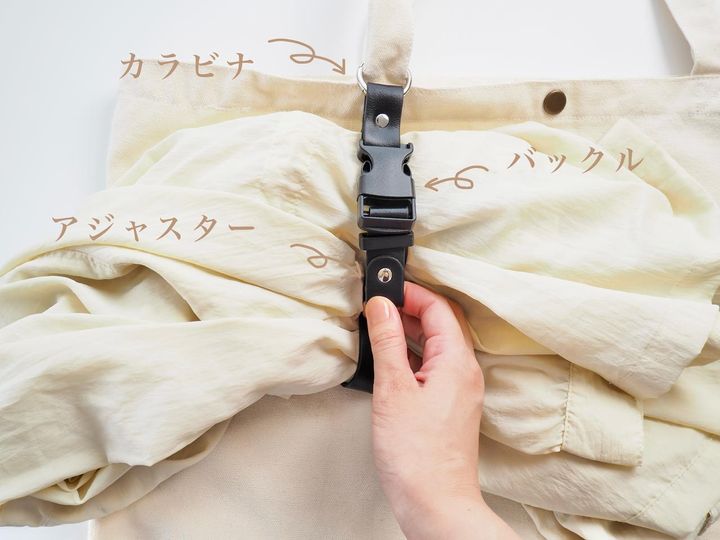 カラビナ
バックル
アジャスター